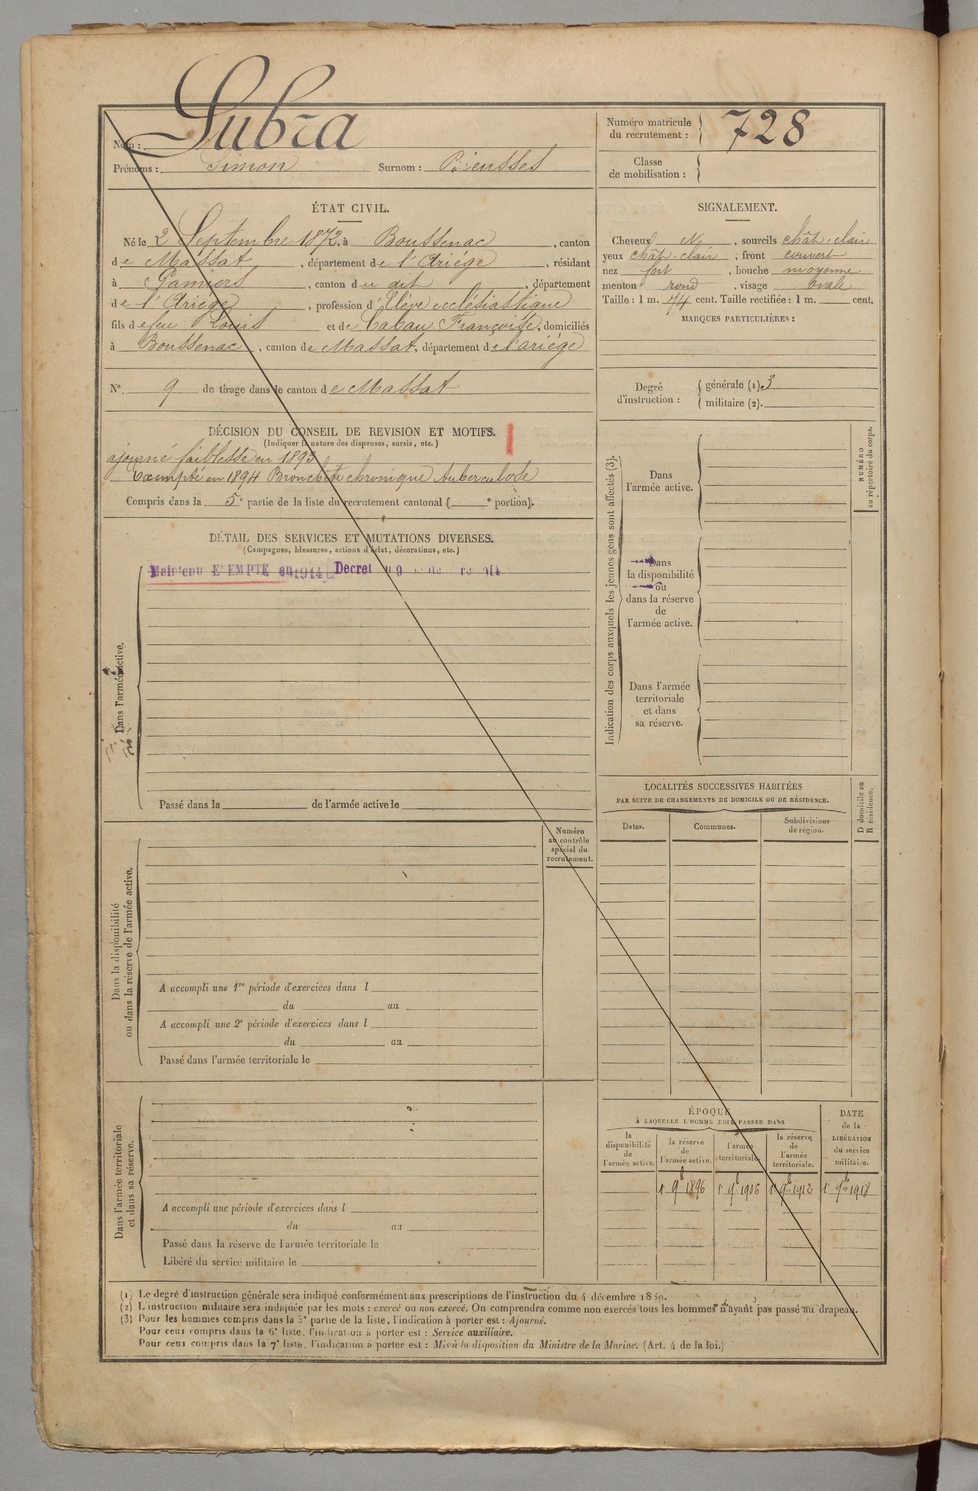 Nom : Subra
Prénoms : Simon Surnom :
Numéro matricule du recrutement : 728
Classe de mobilisation :
ÉTAT CIVIL.
Né le 2 Septembre 1872, à Boussenac, canton
de Massat, département de l'Ariége, résidant
à Pamiers, canton du dit, département
de l'Ariége, profession d'Elève ecclésiastique
fils de feu Louis et de Cabau Françoise, domiciliés
à Boussenac, canton de Massat, département de l'ariége
N° 9 de tirage dans le canton de Massat
SIGNALEMENT.
Cheveux , sourcils chât-clair
yeux chât-clair, front couvert
nez fort, bouche moyenne
menton rond, visage ovale
Taille : 1 m. 74 cent. Taille rectifiée : 1 m. cent.
MARQUES PARTICULIÈRES :
Degré d'instruction : générale (1). 3
militaire (2).
DÉCISION DU CONSEIL DE REVISION ET MOTIFS.
(Indiquer la nature des dispenses, sursis, etc.)
ajourné faiblesse en 1893
Exempté en 1894 Bronchite chronique tuberculose
Compris dans la 5e partie de la liste du recrutement cantonal ( e portion).
DÉTAIL DES SERVICES ET MUTATIONS DIVERSES.
(Campagnes, blessures, actions d'éclat, décorations, etc.)
Maintenu EXEMPTÉ en 1914 Décret du 9
Dans l'armée active.
Passé dans la de l'armée active le
Numéro au contrôle spécial du recrutement.
Dans la disponibilité
ou dans la réserve de l'armée active.
A accompli une 1re période d'exercices dans l
du au
A accompli une 2e période d'exercices dans l
du au
Passé dans l'armée territoriale le
Dans l'armée territoriale
et dans sa réserve.
A accompli une période d'exercices dans l
du au
Passé dans la réserve de l'armée territoriale le
Libéré du service militaire le
Indication des corps auxquels les jeunes gens sont affectés (3).
NUMÉRO
au répertoire du corps.
Dans
l'armée active.
Dans
la disponibilité
ou
dans la réserve
de
l'armée active.
Dans l'armée
territoriale
et dans
sa réserve.
LOCALITÉS SUCCESSIVES HABITÉES
PAR SUITE DE CHANGEMENTS DE DOMICILE OU DE RÉSIDENCE.
D domicile ou
R résidence.
Dates. Communes. Subdivisions de région.
ÉPOQUE
À LAQUELLE L'HOMME DOIT PASSER DANS
la disponibilité de l'armée active.
la réserve de l'armée active.
l'armée territoriale.
la réserve de l'armée territoriale.
DATE de la LIBÉRATION du service militaire.
1er 9bre 1896 1er 9bre 1906 1er 9bre 1912 1er 9bre 1918
(1) Le degré d'instruction générale sera indiqué conformément aux prescriptions de l'instruction du 4 décembre
(2) L'instruction militaire sera indiquée par les mots : exercé ou non exercé. On comprendra comme non exercés tous les hommes n'ayant pas passé au drapeau.
(3) Pour les hommes compris dans la 5e partie de la liste, l'indication à porter est : Ajourné.
Pour ceux compris dans la 6e liste, l'indication à porter est : Service auxiliaire.
Pour ceux compris dans la 7e liste, l'indication à porter est : Mis à la disposition du Ministre de la Marine. (Art. 4 de la loi.)